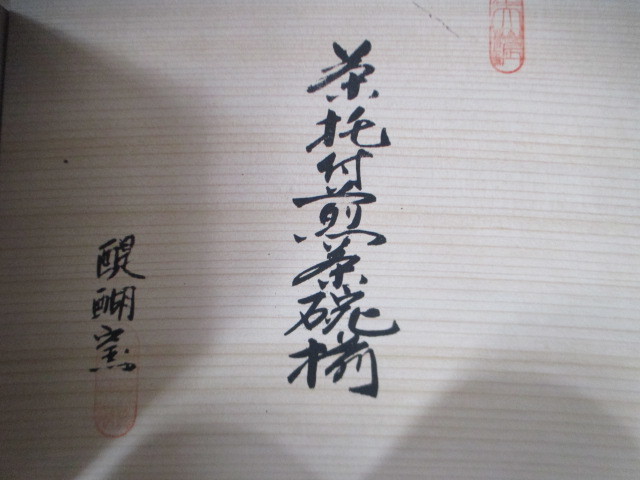 茶托付煎茶碗揃
醍醐窯